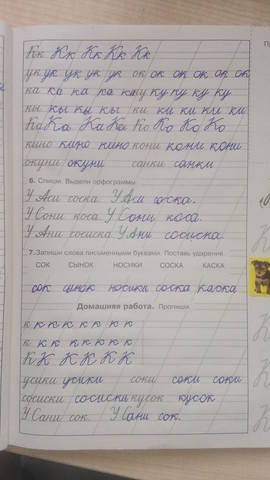 Кк Кк Кк Кк Кк
ук ук ук ук ук ок ок ок ок ок ок
ка ка ка ка ка ку ку ку ку ку
кы кы кы кы ки ки ки ки ки
Ка Ка Ка Ка Ко Ко Ко Ко
кино кино кино кони кони кони
окуни окуни санки санки
6. Спиши. Выдели орфограммы.
У Аси соска. У Аси соска.
У Сони коса. У Сони коса.
У Ани сосиска. У Ани сосиска.
7. Запиши слова письменными буквами. Поставь ударение.
СОК СЫНОК НОСИКИ СОСКА КАСКА
сок сынок носики соска каска
Домашняя работа. Пропиши.
к к к к к к к к
к к к к к к к
К К К К К К
усики усики соки соки соки
сосиски сосиски кусок кусок
У Сани сок. У Сани сок.